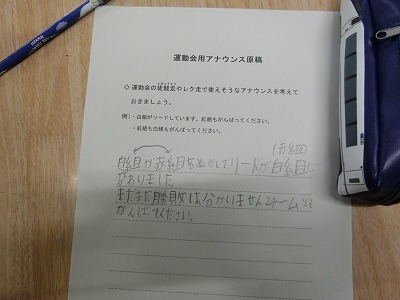 運動会用アナウンス原稿
◇ 運動会の徒競走やレク走で使えそうなアナウンスを考えて
おきましょう。
例)・白組がリードしています。紅組もがんばってください。
・紅組も白組もがんばってください。
(赤組)
白組が赤組をぬかしてリードが白組に
変わりました
まだまだ勝敗は、分かいません2チームとも
がんばってください。